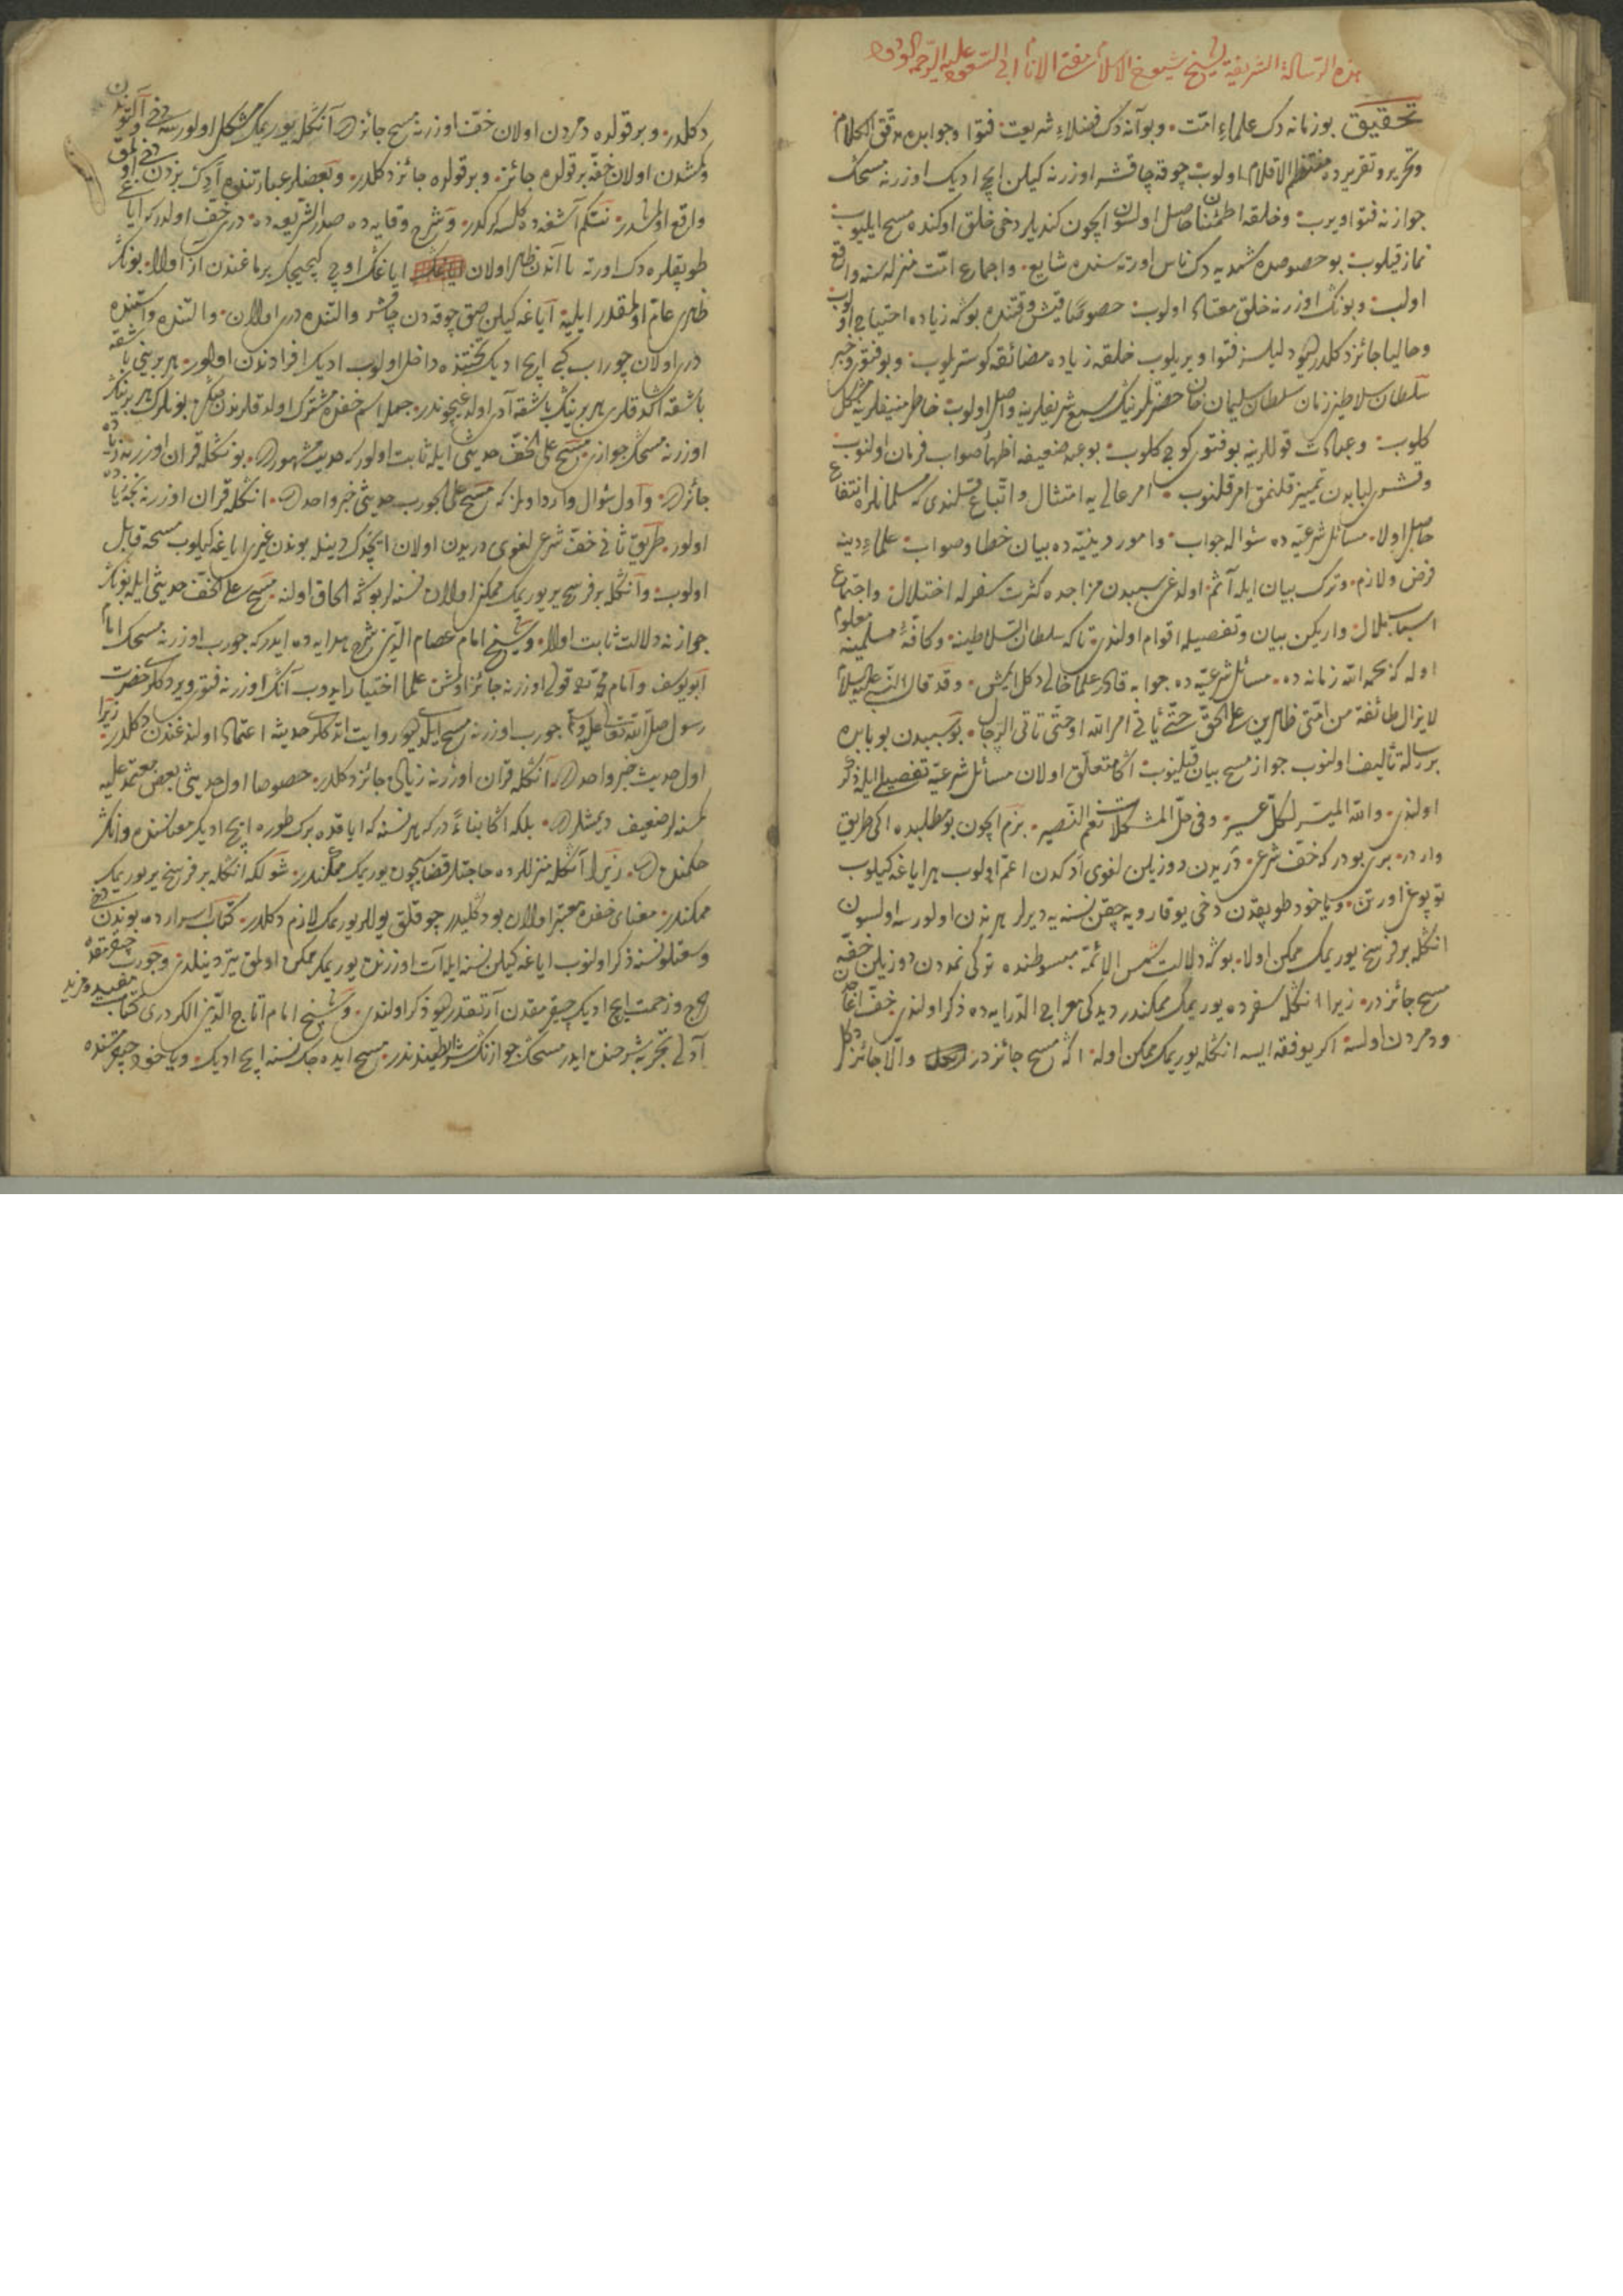 هذه الرسالة الشريفة لشيخ شيوخ الاسلام مفتى الانام ابى السعود عليه الرحمة الودود
تحقيق بو زمانه دك علماء امّت وبو آنه دك فضلاء شريعت فتوا وجوابده مدقق الكلام
وتحرير وتقريرده منتظم الاقلام اولوب چوقه چاقشر اوزرنه كيلن ايچ اديك اوزرنه مسحك
جوازنه فتوا ويرب وخلقه اطمئنان حاصل اولسون ايچون كنديلر دخى خلق اوكنده مسح ايليوب
نماز قيلوب بو خصوصده شمديه دك ناس اورته سنده شايع واجماع امّت منزله سنه واقع
اولب وبونك اوزرنه خلق معتاد اولوب خصوصًا قيش وقتنده بوكه زياده احتياج اولوب
وحاليا جائز دكلدر ديو دليلسز فتوا ويريلوب خلقه زياده مضائقه كوستريلوب وبو فتوى خبر
سلطان سلاطين زمان سلطان سليمان خان حضرتلرينك سمع شريفلرينه واصل اولوب خاطر منيفلرينه مشكل
كلوب وعبادت قوللرينه بو فتوى كوج كلوب بو عبد ضعيفه اظهار صواب فرمان اولنوب
وقشر لبابدن تمييز قلنمق امر قلنوب امر عالى يه امتثال واتباع قلندى كه مسلمانلره انتفاع
حاصل اولا مسائل شرعيّه ده سؤاله جواب وامور دينيّه ده بيان خطا وصواب علماء دينه
فرض ولازم وترك بيان ايله آثم اولدغى سببدن مزاجده كثرت سفرله اختلال واجتماع
اسباب ملال وار يكن بيان وتفصيله اقدام اولندى تا كه سلطان السلاطينه وكافّهٔ مسلمينه معلوم
اوله كه بحمد الله زمانه ده مسائل شرعيّه ده جوابه قادر علما خالى دكل ايمش وقد قال النبى عليه السلام
لا يزال طائفة من امّتى ظاهرين على الحقّ حتّى يأتى امر الله او حتّى تاتى الرجال بو سببدن بو بابده
بر رساله تأليف اولنوب جواز مسح بيان قيلنوب اكا متعلّق اولان مسائل شرعيّه تفصيل ايله ذكر
اولندى والله الميسّر لكلّ عسير وفى حلّ المشكلات نعم النّصير بزم ايچون بو مطلبده ايكى طريق
وار در برى بودر كه خفّ شرعى دريدن دوزيلن لغوى ادكدن اعمّ اولوب هر اياغه كيلوب
توپوغى اورتن ويا خود طوپقدن دخى يوقارويه چقن نسنه يه ديرلر هر ندن اولورسه اولسون
انكله بر فرسخ يوريمك ممكن اولا بوكه دلالت شمس الائمّه مبسوطنده تركى نمددن دوزيلن خفّه
مسح جائز در زيرا انكله سفرده يوريمك ممكندر ديدكى معراج الدّرايه ده ذكر اولندى
ودمردن اولسه اكر يوفقه ايسه انكله يوريمك ممكن اوله اكا مسح جائز در والّا جائز دكل
دكلدر وبر قولده دمردن اولان خفّ اوزرنه مسح جائز در آنكله يوريمك مشكل اولورسه دخى آلتوندن
وكمشدن اولان خفّه بر قولده جائز وبر قولده جائز دكلدر وبعضيلر عبارتنده
واقع اولمشدر نته كم آشغده كلسه كركدر وشرح وقايه ده صدر الشريعه ده در خفّ اولدر كه اياغى
طوپقلره دك اورته يا آندن ظاهر اولان اياغك اوچ كيچيجك برماغندن از اولا بونك
ظاهرى عامّ اولمقدر ايله اياغه كيلن صق چوقه دن چاقشر والتنده درى اولان والتنده واستنده
درى اولان چوراب كبى ايچ اديك تحتنده داخل اولوب اديك افرادندن اولور هر برينى باشقه
اوزرنه مسحك جوازى مسح على الخفّ حديثى ايله ثابت اولور كه حديث مشهور در بونكله قران اوزرنه زياده
جائز در واول سؤال وارد اولمز كه مسح على الجورب حديثى خبر واحد در انكله قران اوزرنه نجه زياده
اولور طريق ثانى خفّ شرعى لغوى دريدن اولان ايچون دينله بوندن غيرى اياغه كيلوب مسحه قابل
اولوب وآنكله بر فرسخ ير يوريمك ممكن اولان نسنه لر بوكه الحاق اولنه مسح على الخفّ حديثى ايله بونك
جوازنه دلالت ثابت اولا وشيخ امام عصام الدّين شرح هدايه ده ايدر كه جورب اوزرنه مسحك امام
ابو يوسف وامام محمد قولى اوزرنه جائز اولمش علما اختيار ايدوب آنك اوزرنه فتوى ويردكلرى حضرت
رسول صلى الله تعالى عليه وسلم جورب اوزرنه مسح ايلدى ديو روايت اتدكلرى حديثه اعتماد اولندغندن دكلدر زيرا
اول حديث خبر واحد در آنكله قران اوزرنه زيادى جائز دكلدر خصوصا اول حديثى بعض معتمد عليه
كمسنه لر ضعيف ديمشلر در بلكه اكا بناءً در كه هر نسنه كه اياقده برك طوره ايچ اديك معناسنده وانك
حكمنده در زيرا آنكله منزللرده حاجتلر قضاسيچون يوريمك ممكندر شول كه انكله بر فرسخ ير يوريمك
ممكندر معناى خفده معتبر اولان بودر دكلدر چوقلق يوللر يوريمك لازم دكلدر كتاب اسرارده بوندن دخى
وسعتلو نسنه ذكر اولنوب اياغه كيلن نسنه ايله آت اوزرنده يوريمك ممكن اولمق يتر دينلدى وجورب چقرمقده
حرج وزحمت ايچ اديك چقرمقدن آرتقدر ديو ذكر اولندى وشيخ امام تاج الدّين الكردرى كتاب مفيد ومزيد
آدلى تجريد شرحنده ايدر مسحك جوازنك شرايطندندر مسح ايده جك نسنه ايچ اديك ويا خود چيزمه سنده